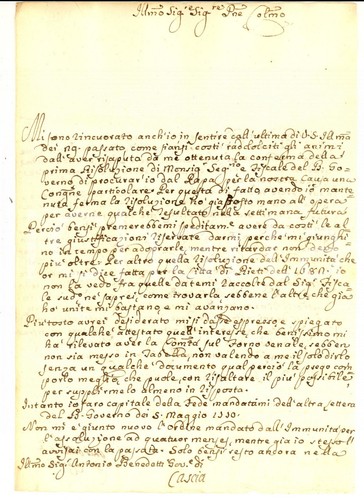 Illmo Sig.r e Sig.re Pne Colmo
Mi sono rincuorato anch'io in sentire coll'ultima di V.S. Illma
dei 29. passato, come siansi costì raddolciti gli animi
dall'aver risaputa da me ottenuta la conferma della
prima Risoluzione di Monsig.r Seg.rio e Fiscale del B. Go-
verno di procurar io dal Papa per la nostra Causa una
Congne particolare. Per questa di fatto avendo io mante-
nuta ferma la Risoluzione ho già posto mano all'opera
per averne qualche resultato nella settimana futura
Perciò bensì premerebbemi speditame aver da costì le al-
tre giustificazioni riservate darmi, perche mi giunghi-
no in tempo per adoprarle, mentre ritardare non deggio
più oltre. Per altro quella Risoluzione dell'Immunità che
or mi si dice fatta per la Città di Rieti dell'1681. io
non la vedo fra quelle datemi raccolte dal Sig.r Fisca-
le, sud.o ne saprei, come trovarla sebbene l'altre che già
ho unite mi bastano e mi avanzano.
Piuttosto averei desiderato missi dasse espresso e spiegato
con qualche attestato quell'interesse, che
ha rilevato aver la Comità sul Forno venale, sebbene
non sia messo in Tabella, non valendo a me il solo dirlo
senza un qualche documento, qual perciò la prego com-
porlo meglio, che puole, con risaltare il più possibile
per supplirmela almeno in risposta.
Intanto io farò capitale della Fede mandatami dell'altra lettera
del B. Governo dei 5. Maggio 1730.
Non mi è giunto nuovo l'ordine mandato dall'Immunità per
l'assoluzione ad quatuor menses, mentre già io stesso l'
avvisai con la passata. Solo bensì resto ancora nella
Illmo Sig.r Antonio Benedetti Gov.re di
Cascia